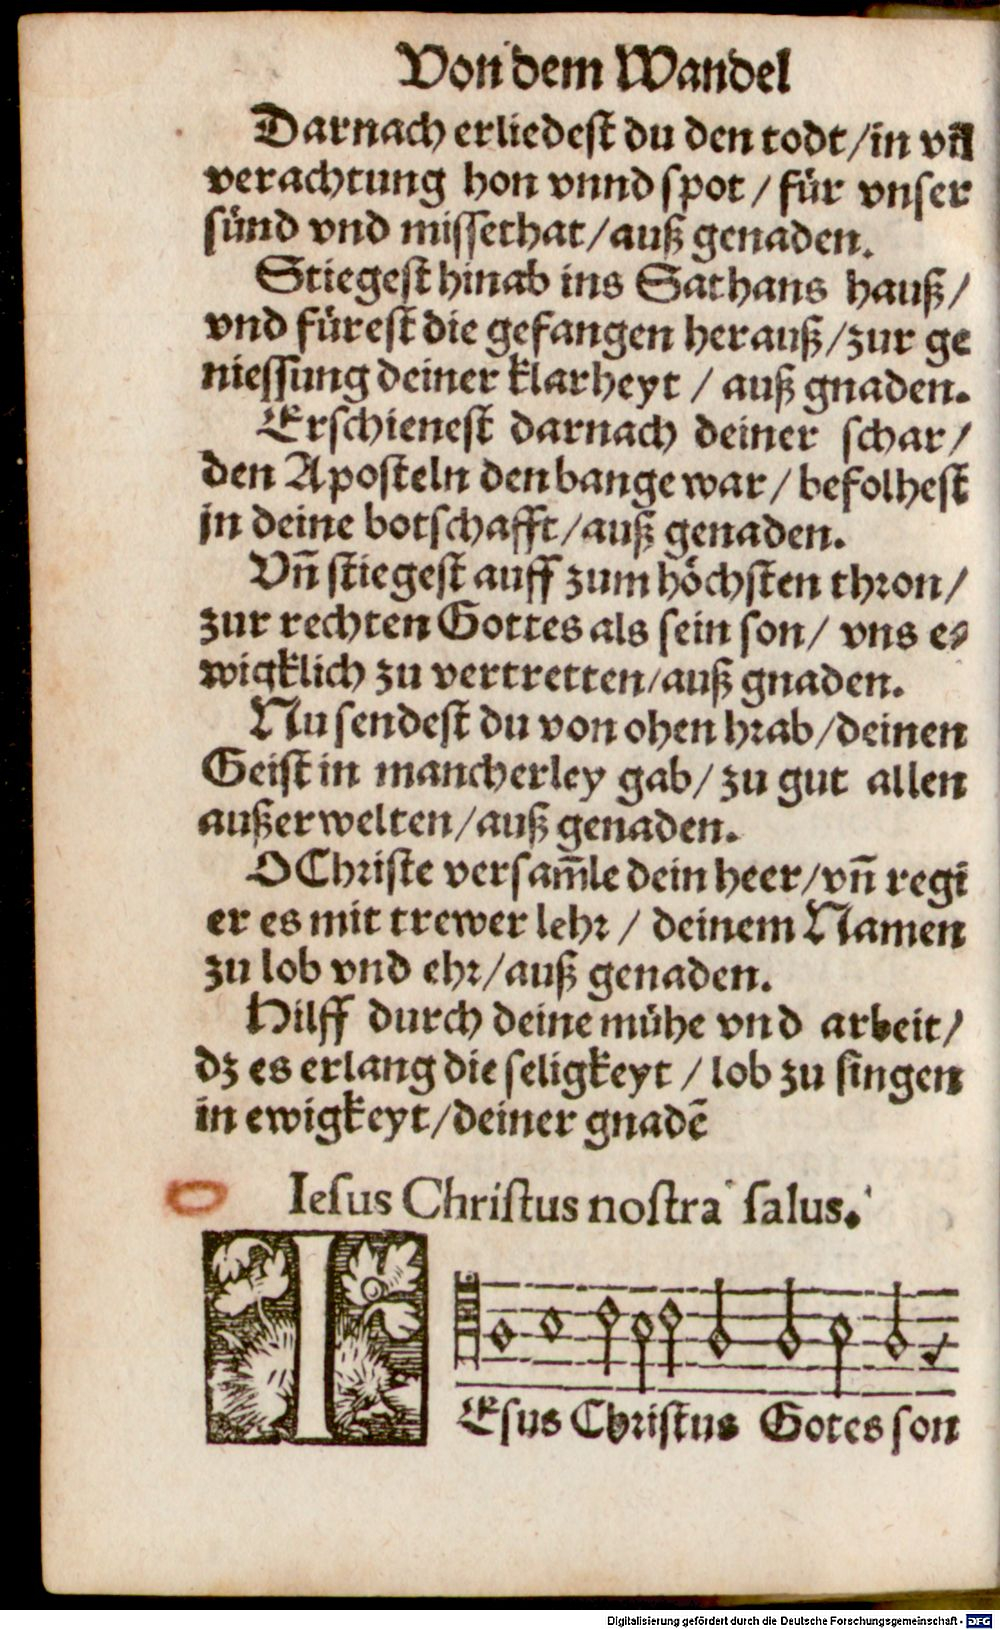 Von dem Wandel
Darnach erliedest du den todt/in vil
verachtung hon vnnd spot / für vnser
sünd vnd missethat/auß genaden.
Stiegest hinab ins Sathans hauß/
vnd fürest die gefangen herauß/zur ge
niessung deiner klarheyt / auß gnaden.
Erschienest darnach deiner schar/
den Aposteln den bange war/ befolhest
jn deine botschafft/auß genaden.
Vñ stiegest auff zum höchsten thron/
zur rechten Gottes als sein son/ vns e-
wigklich zu vertretten/auß gnaden.
Nu sendest du von ohen hrab/deinen
Geist in mancherley gab/ zu gut allen
außerwelten/auß genaden.
O Christe versam̃le dein heer/vñ regi
er es mit trewer lehr / deinem Namen
zu lob vnd ehr/auß genaden.
Hilff durch deine mühe vnd arbeit/
dz es erlang die seligkeyt / lob zu singen
in ewigkeyt/deiner gnadẽ
Iesus Christus nostra salus.
IEsus Christus Gotes son
Digitalisierung gefördert durch die Deutsche Forschungsgemeinschaft - DFG